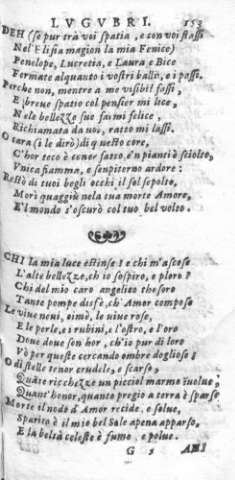 LVGVBRI. 153
DEH (se pur trà voi spatia, e con voi stassi
Nel'Elisia magion la mia Fenice)
Penelope, Lucretia, e Laura e Bice
Formate alquanto i vostri balli, e i passi.
Perche non, mentre a me visibil fassi,
E breue spatio col pensier mi lice,
Ne le bellezze sue farmi felice,
Richiamata da uoi, ratto mi lassi.
O cara (i le dirò) di questo core,
C'hor teco è conar fatto, e'n pianti è sciolto,
Vnica fiamma, e sempiterno ardore:
Restò di tuoi begli occhi il sol sepolto,
Morì quaggiù nela tua morte Amore,
E'l mondo s'oscurò col tuo bel volto.
CHI la mia luce estinse? e chi m'ascose
L'alte bellezze, ch'io sospiro, e ploro?
Chi del mio caro angelico thesoro
Tante pompe disfè, ch'Amor compose
Le viue neui, oimè, le viue rose,
E le perle, e i rubini, e l'ostro, e l'oro
Doue doue son hor, ch'io pur di loro
Vò per queste cercando ombre dogliose?
O di stelle tenor crudele, e scarso,
Quãte ricchezze un picciol marmo inuolue;
Quant'honor, quanto pregio a terra è sparso
Morte il nodo d'Amor recide, e solue,
Sparito è il mio bel Sole apena apparso,
E la beltà celeste è fumo, e polue.
G 5 AHI